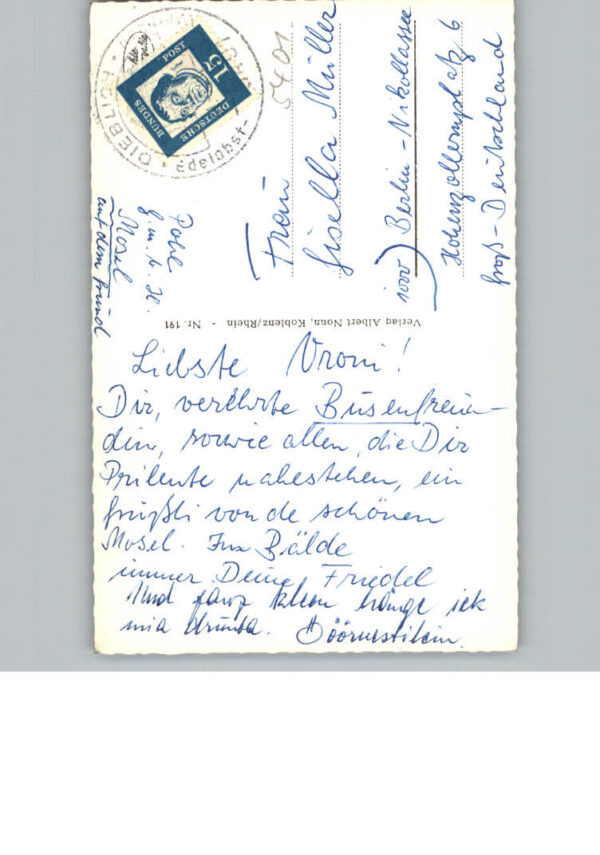 Liebste Vroni!
Dir, verehrte Busenfreun-
din, sowie allen, die Dir
Prilente nahestehen, ein
grüßli von de schönen
Mosel. Im Bälde
immer Deine Friedel
Und ganz klein hänge ick
mia drunta.
Frau
Gisella Müller
1000) Berlin-Nikollassee
Hohenzollernplatz 6
Groß-Deutschland
5401
Mosel
auf dem
Verlag Albert Nonn, Koblenz/Rhein - Nr. 191
DEUTSCHE
BUNDES
POST
15
DIEBLICH